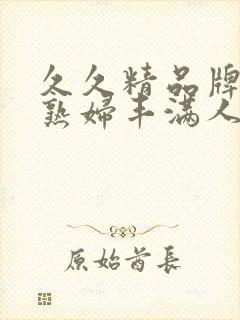 久久精品牌
熟婦丰满人
原始酋長